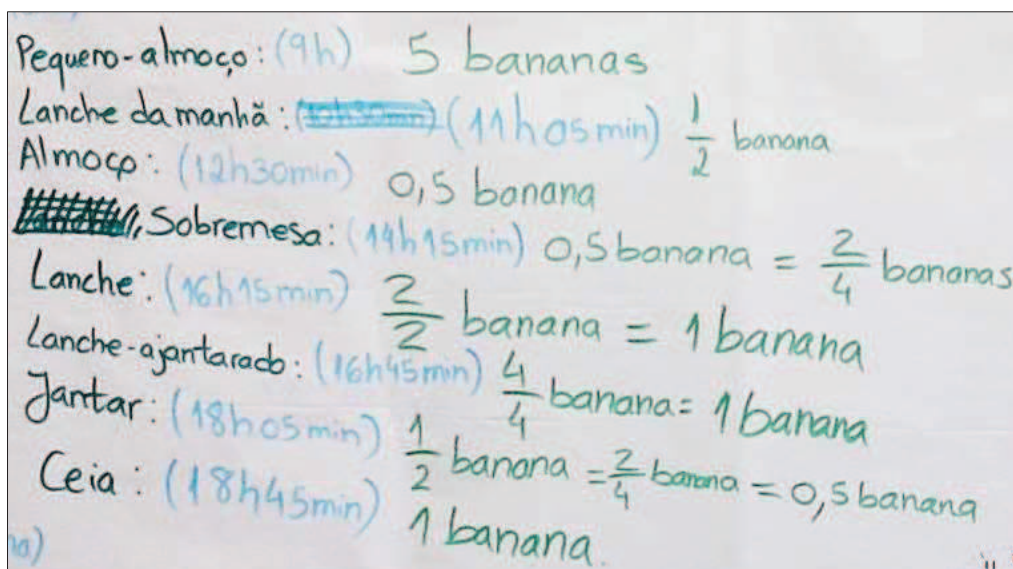 Pequeno-almoço: (9h) 5 bananas
Lanche da manhã: (11h05min) 1/2 banana
Almoço: (12h30min) 0,5 banana
Sobremesa: (14h15min) 0,5 banana = 2/4 bananas
Lanche: (16h15min) 2/2 banana = 1 banana
Lanche-ajantarado: (16h45min) 4/4 banana = 1 banana
Jantar: (18h05min) 1/2 banana = 2/4 banana = 0,5 banana
Ceia: (18h45min) 1 banana